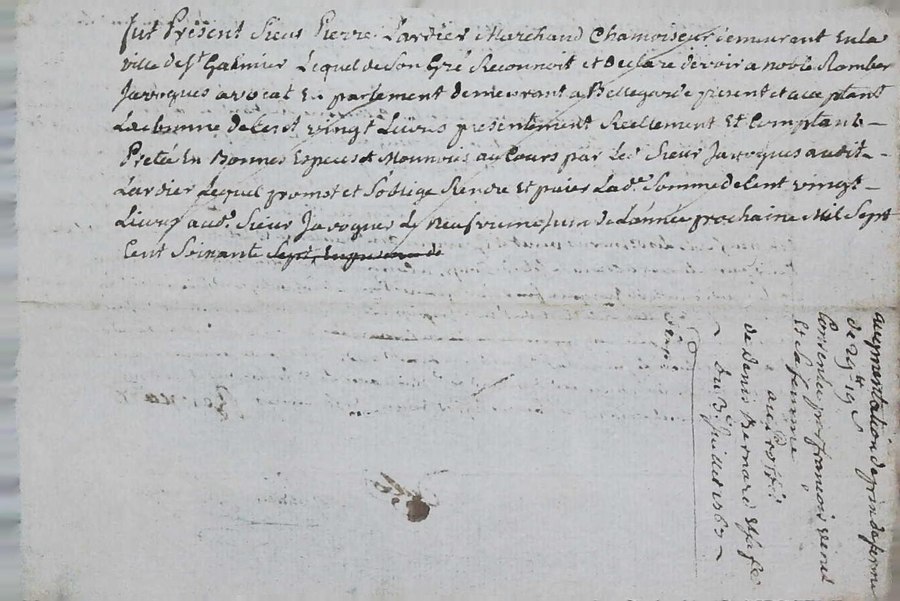 fut Présent Sieur Pierre Lardier Marchand Chamoiseur demeurant En la
ville de St Galmier Lequel de Son Gré Reconnoit et Declare devoir a noble Rombert
Javogues avocat En parlement demeurant a Bellegarde present et acceptant
La somme de Cent vingt Livres presentement Reellement Et Comptant
Pretée En Bonnes Especes et Monnoies au Cours par Led. Sieur Javogues audit
Lardier Lequel promet et S'oblige Rendre Et païer Lade. Somme de Cent vingt
Livres aud. Sieur Javogues Le neufvieme Juin de L'année prochaine Mil Sept
Cent Soixante Sept,
augmentation de prix de ferme
de 29tt 19s
Consentu par françois
Et Sa femme
au Profit
de Denis Bernard Et Sa fe
du 3e Juillet 1763